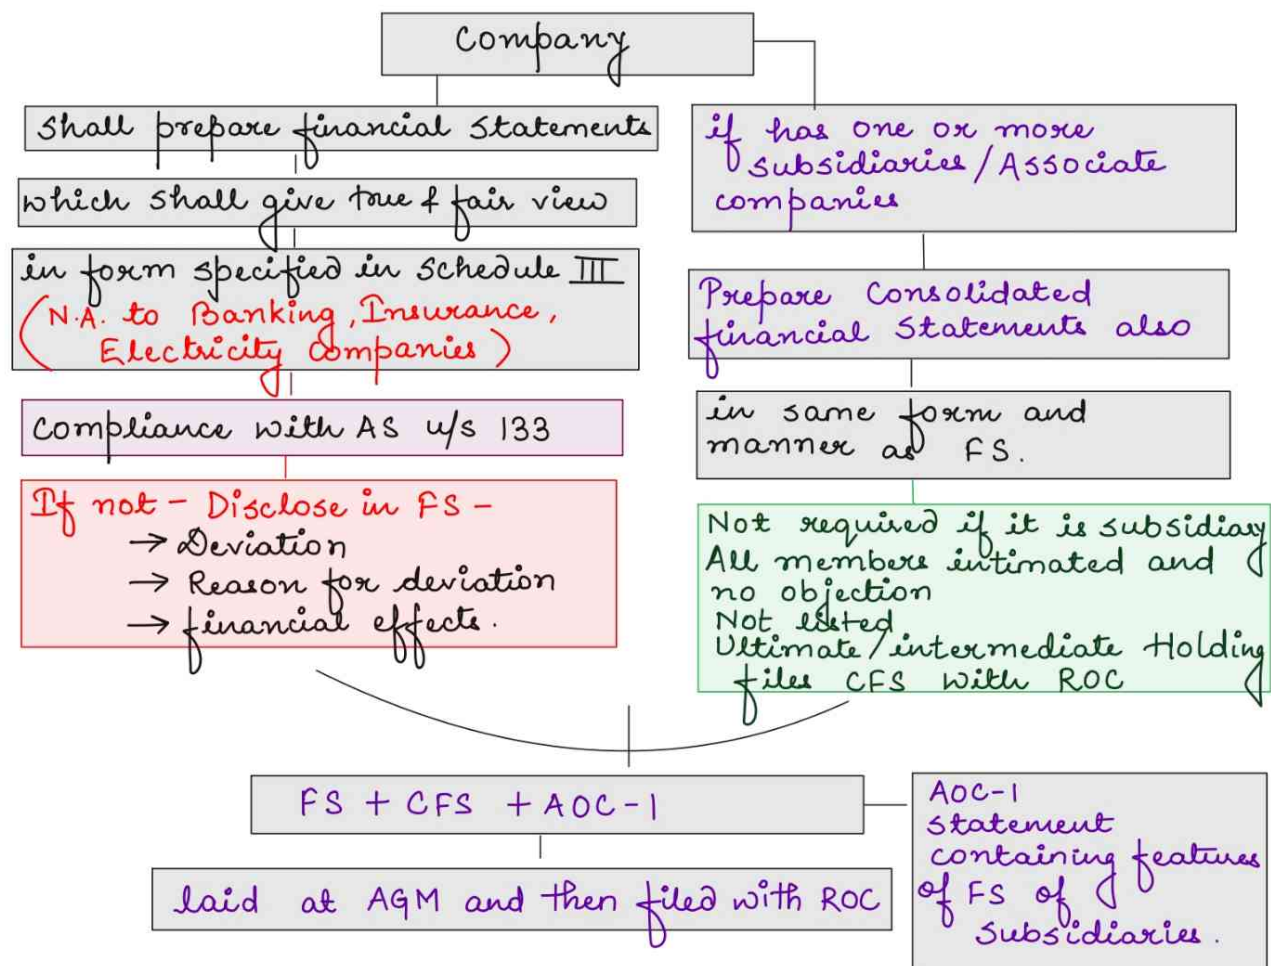 Company
Shall prepare financial statements
which shall give true & fair view
in form specified in Schedule III
(N.A. to Banking, Insurance,
Electricity Companies)
Compliance with AS u/s 133
If not - Disclose in FS -
→ Deviation
→ Reason for deviation
→ financial effects.
if has one or more
subsidiaries/Associate
companies
Prepare Consolidated
financial Statements also
in same form and
manner as FS.
Not required if it is subsidiary
All members intimated and
no objection
Not listed
Ultimate/intermediate Holding
files CFS with ROC
FS + CFS + AOC-1
laid at AGM and then filed with ROC
AOC-1
Statement
containing features
of FS of
subsidiaries.